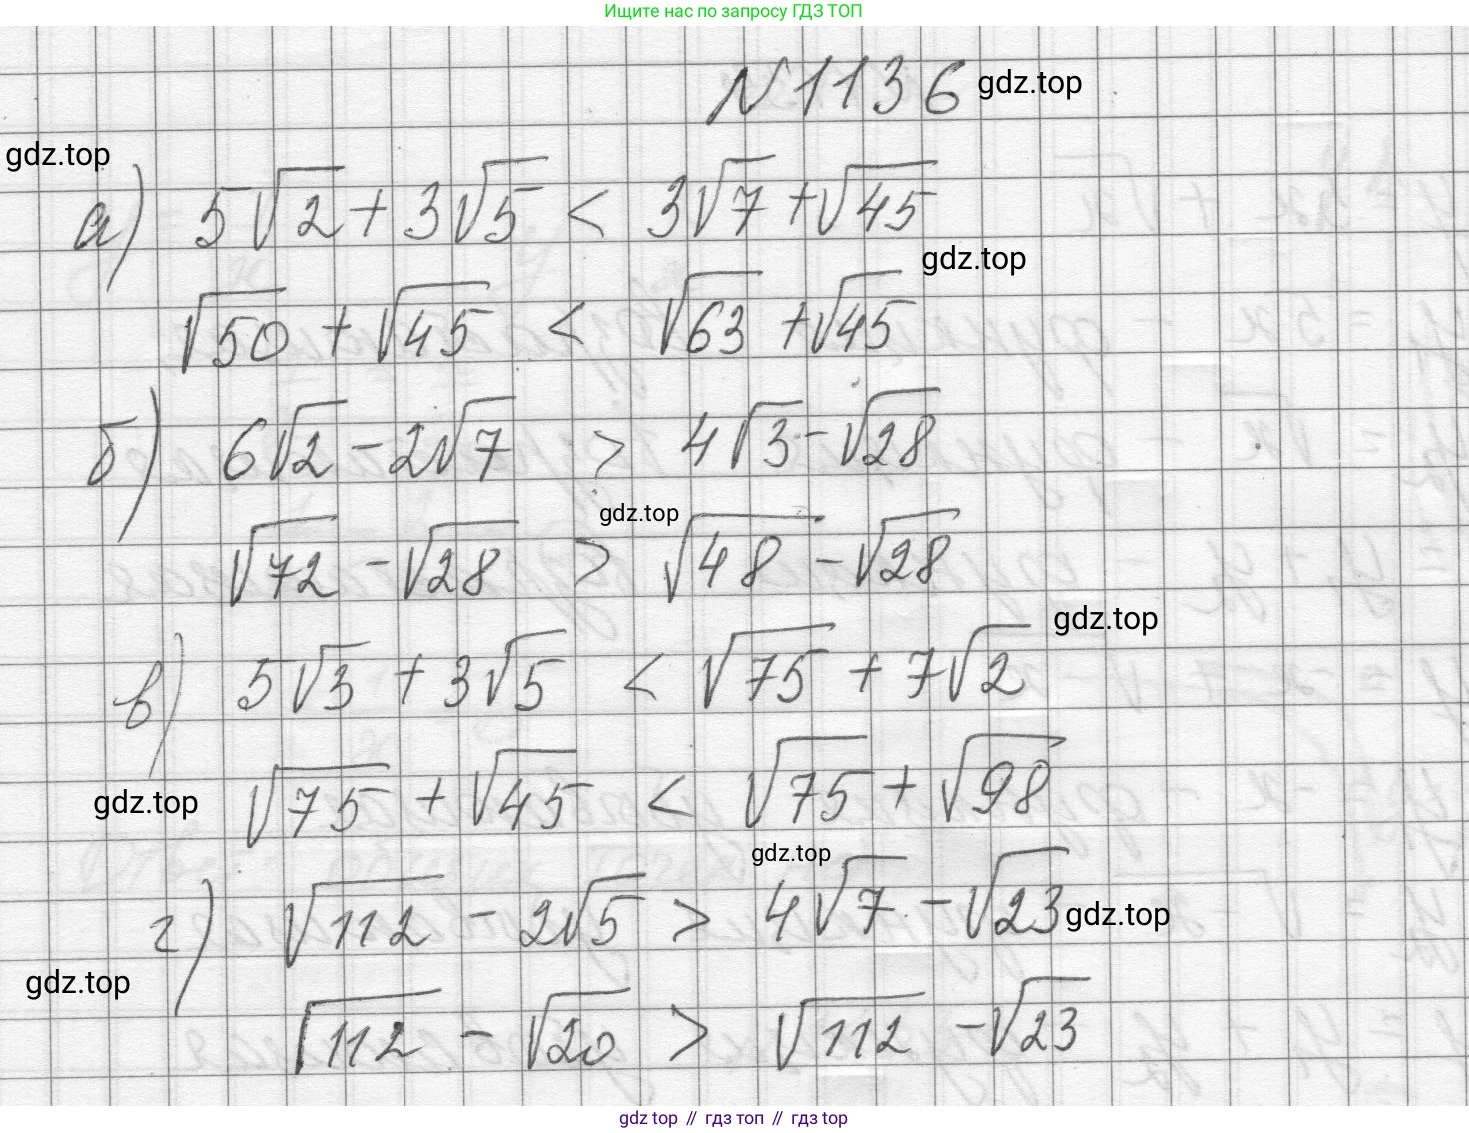 Ищите нас по запросу ГДЗ ТОП
№1136 gdz.top
gdz.top
а) 5√2 + 3√5 < 3√7 + √45
gdz.top
√50 + √45 < √63 + √45
б) 6√2 - 2√7 > 4√3 - √28
gdz.top
√72 - √28 > √48 - √28
gdz.top
в) 5√3 + 3√5 < √75 + 7√2
gdz.top √75 + √45 < √75 + √98
gdz.top
г) √112 - 2√5 > 4√7 - √23 gdz.top
gdz.top
√112 - √20 > √112 - √23
gdz top // гдз топ // гдз top